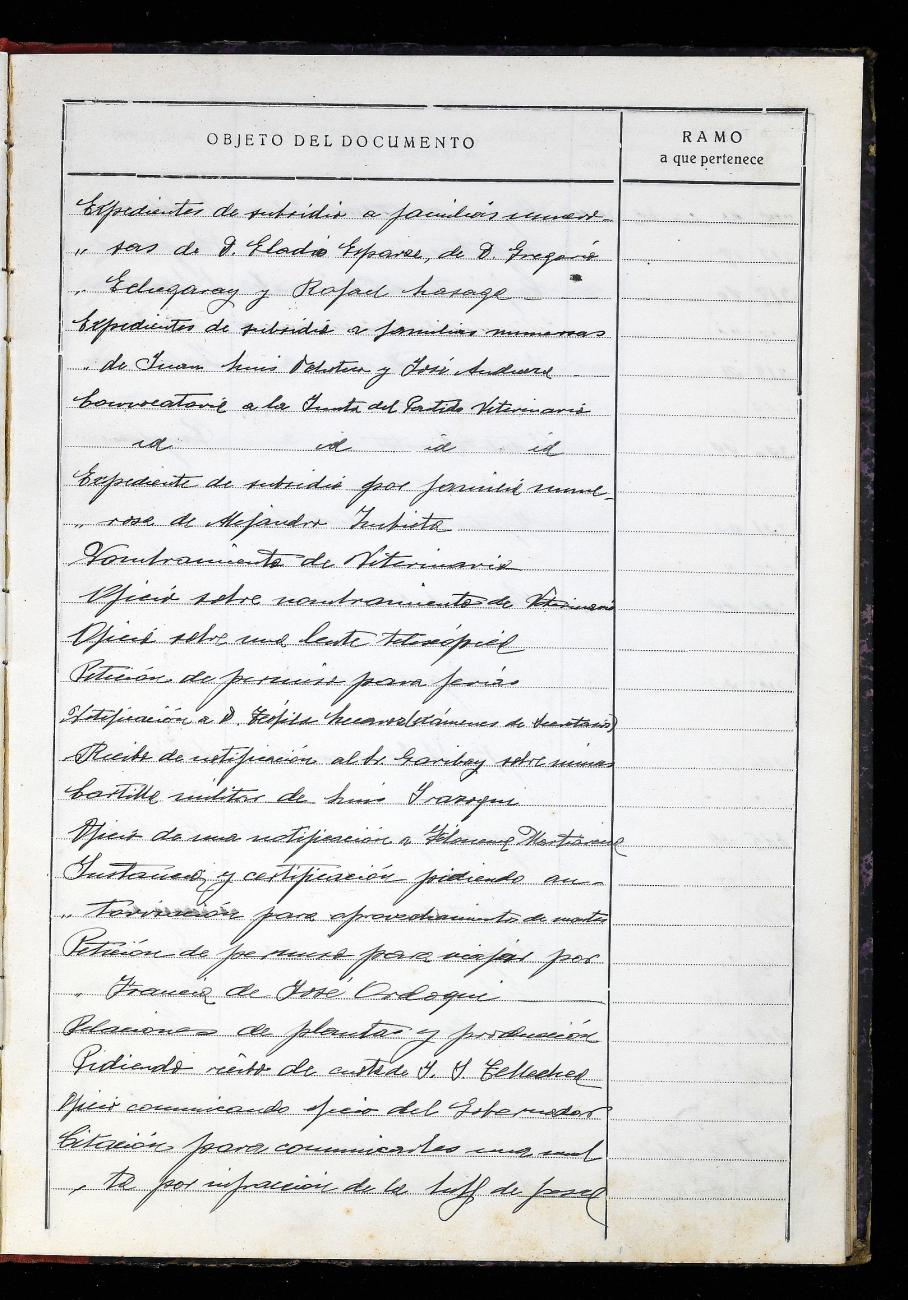 OBJETO DEL DOCUMENTO
RAMO
a que pertenece
Expedientes de subsidio a familias numero-
" sas de D. Eladio Esparza, de D. Gregorio
" Echegaray y Rafael Lasaga
Expedientes de subsidio a familias numerosas
" de Juan Luis Ochoteco y José Andueza
Convocatoria a la Junta del Partido Veterinario
id id id id
Expediente de subsidio por familia nume-
" rosa de Alejandro Zubieta
Nombramiento de Veterinario
Oficio sobre nombramiento de Veterinario
Oficio sobre una lente telescópica
Petición de permiso para ferias
Notificación a D. (Exámenes de Secretario)
Recibo de notificación al Sr. Garibay sobre minas
Cartilla militar de Luis Irazoqui
Oficio de una notificación a Filomena Martiarena
Instancia y certificación pidiendo au-
" torización para aprovechamiento de montes
Petición de permiso para viajar por
" Francia de José Ordoqui
Relaciones de plantas y producción
Pidiendo recibo de carta de J. J. Tellechea
Oficio comunicando oficio del Gobernador
Citación para comunicarles una mul
" ta por infracción de la de pesca